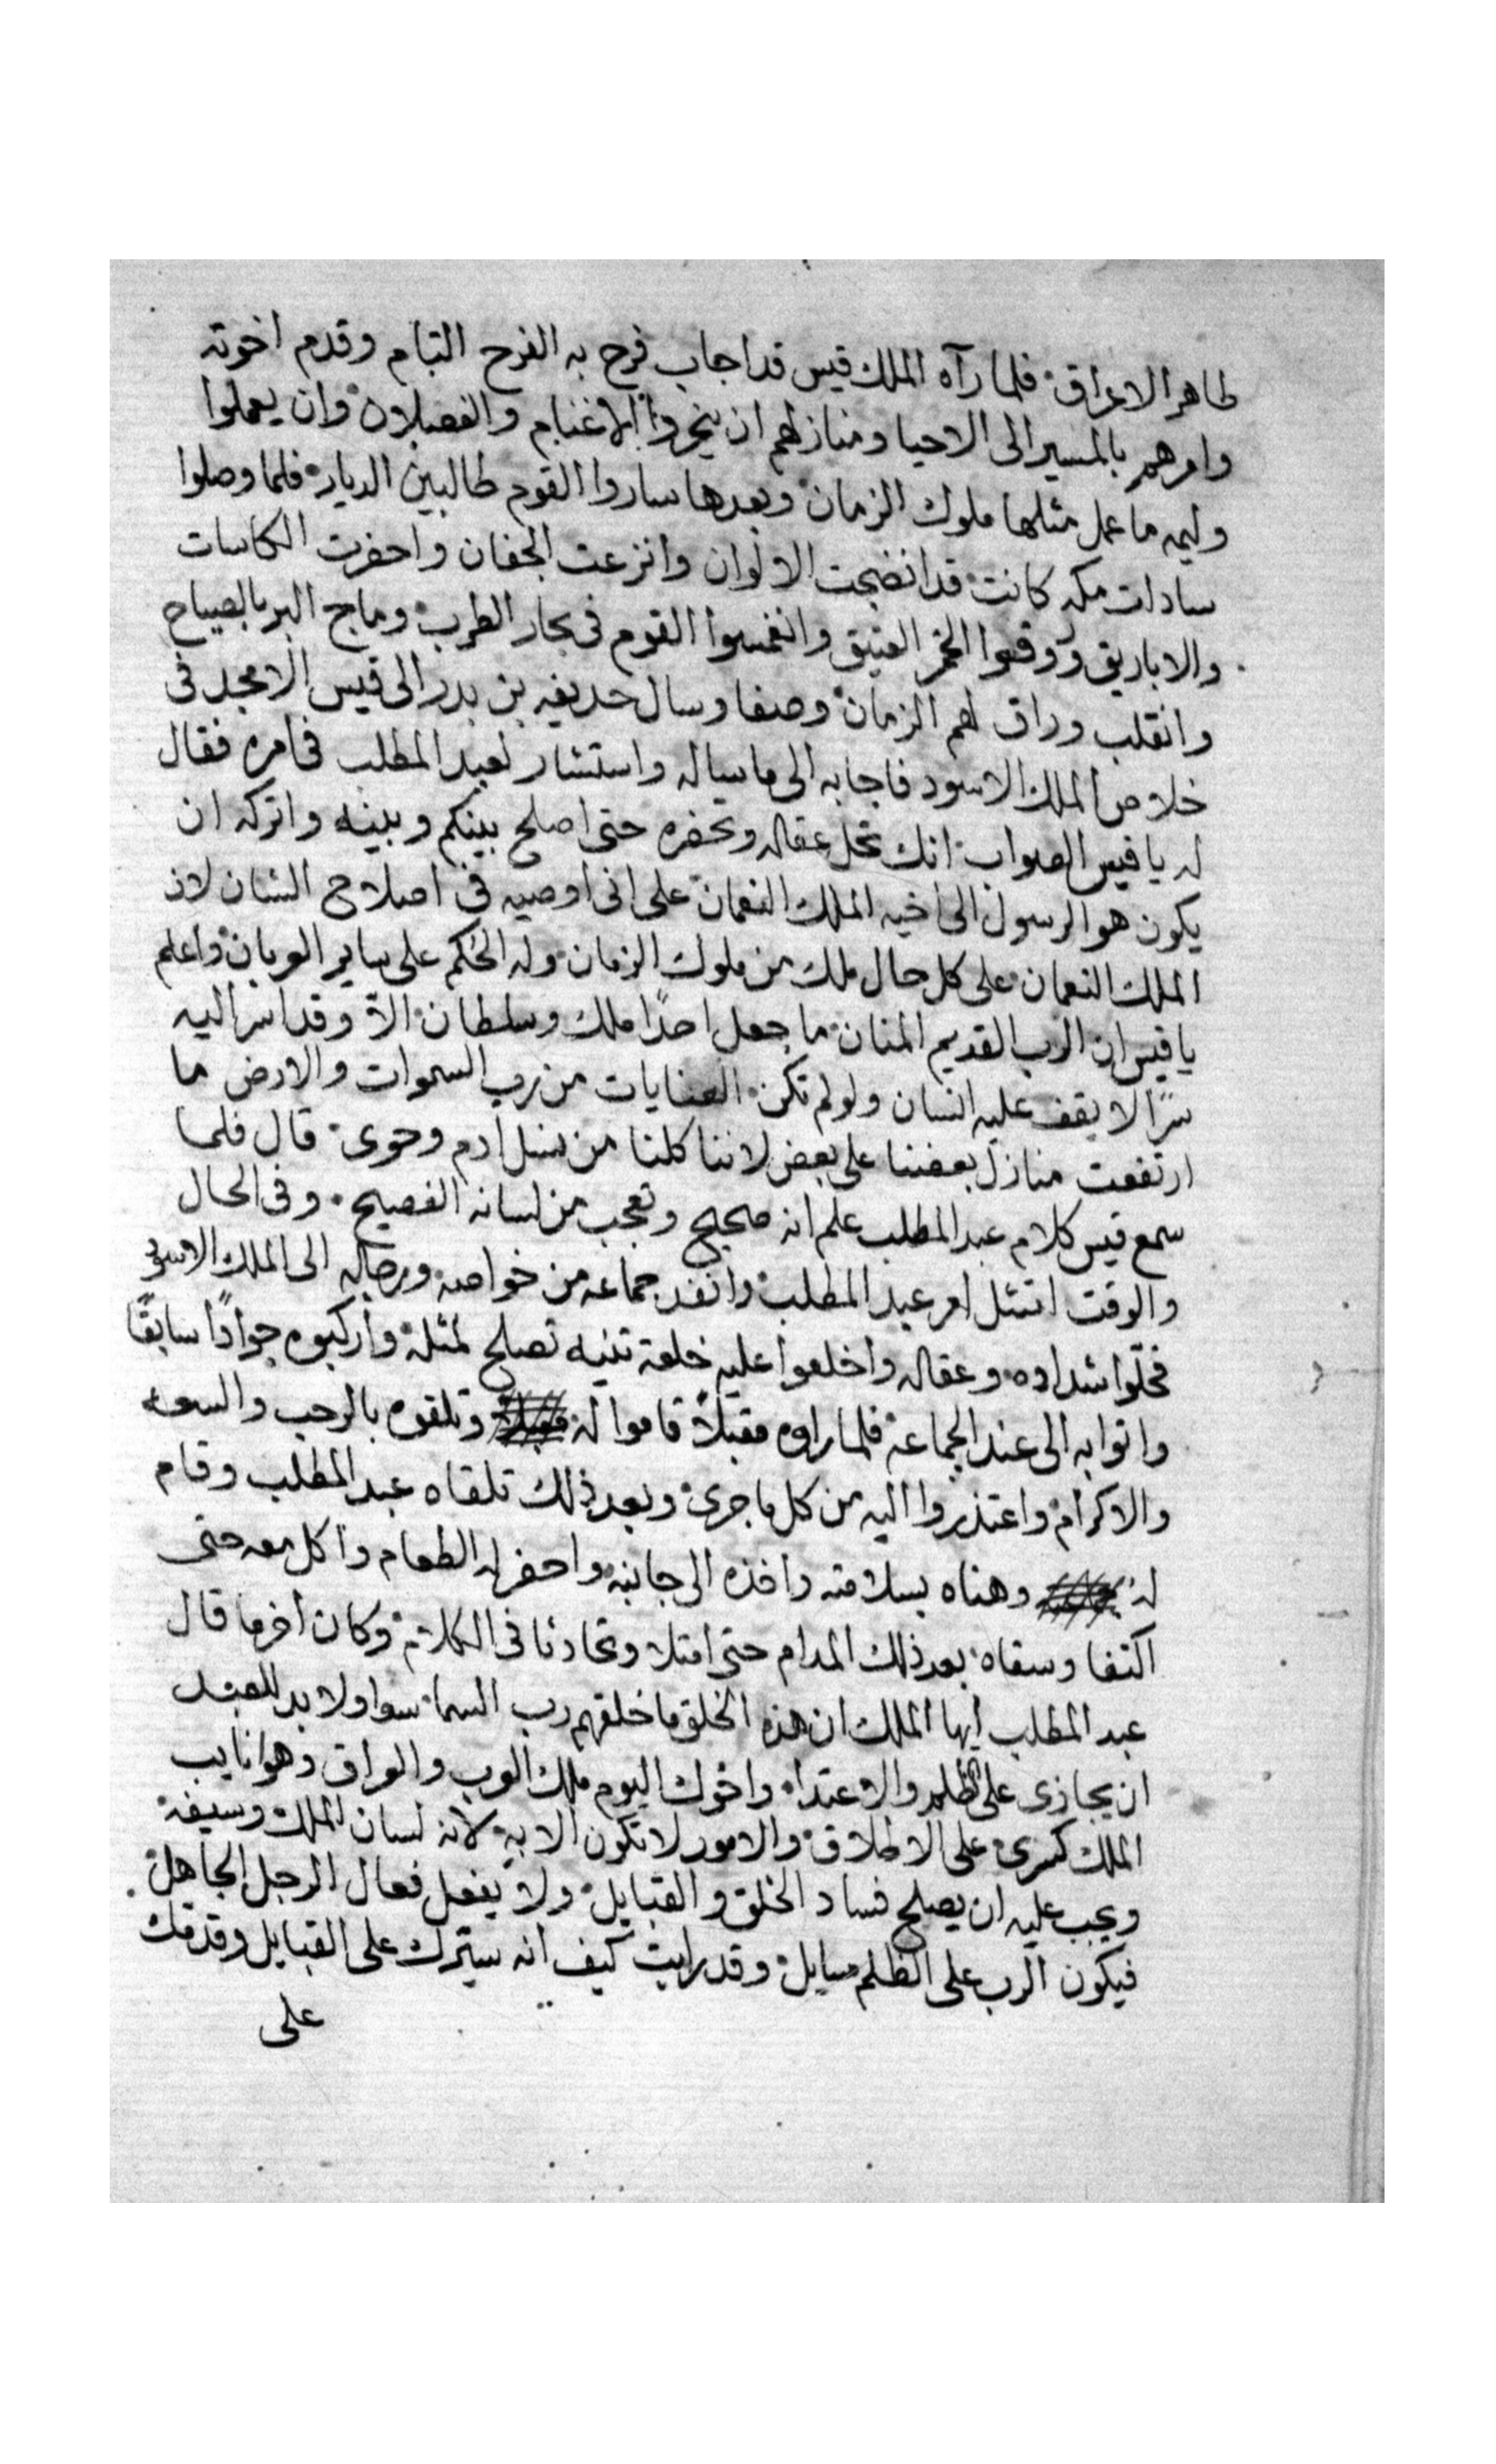 طاهر الاعراق فلما رآه الملك قيس قد اجاب فرح به الفرح التام وقدم اخوته
وامرهم بالمسير الى الاحيا ومنازلهم ان ينحروا الاغنام والفصلان وان يعملوا
وليمه ما عمل مثلها ملوك الزمان وبعدها ساروا القوم طالبين الديار فلما وصلوا
سادات مكه كانت قد انضجت الالوان وانزعت الجفان واحضرت الكاسات
والاباريق وروقوا الخمر العتيق وانغمسوا القوم في بحار الطرب وماج البر بالصياح
وانقلب وراق لهم الزمان وصفا وسال حديفه بن بدر الى قيس الامجد في
خلاص الملك الاسود فاجابه الى ما ساله واستشار لعبد المطلب في امره فقال
له يا قيس الصواب انك تحل عقاله وتحضره حتى اصلح بينكم وبينه واتركه ان
يكون هو الرسول الى اخيه الملك النعمان على اني اوصيه في اصلاح الشان لان
الملك النعمان على كل حال ملك من ملوك الزمان وله الحكم على ساير العربان واعلم
يا قيس ان الرب القديم المنان ما جعل احدًا ملك وسلطان الا وقد اسر اليه
سرًا لا يقف عليه انسان ولو لم تكن العنايات من رب السموات والارض ما
ارتفعت منازل بعضنا على بعض لاننا كلنا من نسل ادم وحوى قال فلما
سمع قيس كلام عبد المطلب علم انه صحيح وتعجب من لسانه الفصيح وفي الحال
والوقت امتثل امر عبد المطلب وانفد جماعه من خواصه ورجاله الى الملك الاسود
فحلّوا شداده وعقاله واخلعوا عليه خلعة تنيه تصلح لمثله واركبوه جوادًا سابقًا
واتوا به الى عند الجماعه فلما راوه مقبلاً قاموا له وتلقوه بالرحب والسعه
والاكرام واعتذروا اليه من كل ما جرى وبعد ذلك تلقاه عبد المطلب وقام
له وهناه بسلامته واخذه الى جانبه واحضر له الطعام واكل معه حتى
اكتفا وسقاه بعد ذلك المدام حتى امتلا وتحادثا في الكلام وكان اخر ما قال
عبد المطلب ايها الملك ان هذه الخلق ما خلقهم رب السما سوا ولا بد للعبد
ان يجازى على الظلم والاعتداء واخوك اليوم ملك العرب والعراق وهو نايب
الملك كسرى على الاطلاق والامور لا تكون الا به لانه لسان الملك وسيفه
ويجب عليه ان يصلح فساد الخلق والقبايل ولا يفعل فعال الرجل الجاهل
فيكون الرب على الظلم سايل وقد رايت كيف انه سيترك على القبايل وقدمك
على